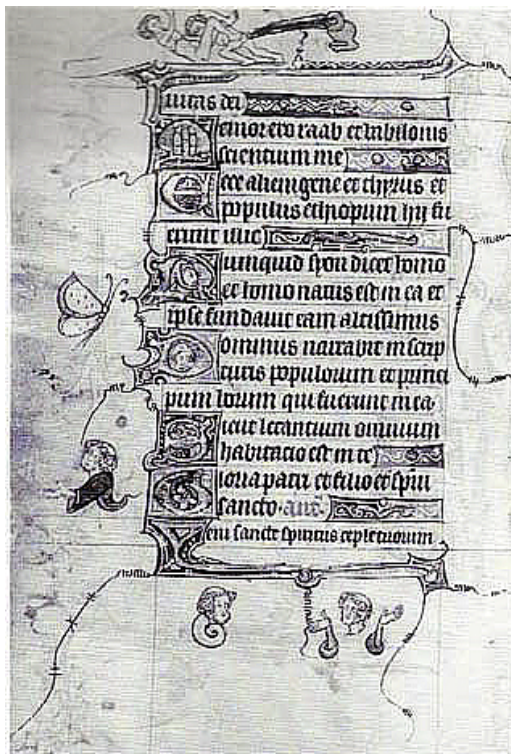 iuitas dei
Memor ero raab et babilonis
scientium me
Ecce alienigene et thyrus et
populus ethiopum hii fu
erunt illic
Nunquid syon dicet homo
et homo natus est in ea et
ipse fundauit eam altissimus
Dominus narrabit in scrip
turis populorum et princi
pum horum qui fuerunt in ea
Sicut letantium omnium
habitacio est in te
Gloria patri et filio et spiri
sancto. ant.
Veni sancte spiritus reple tuorum